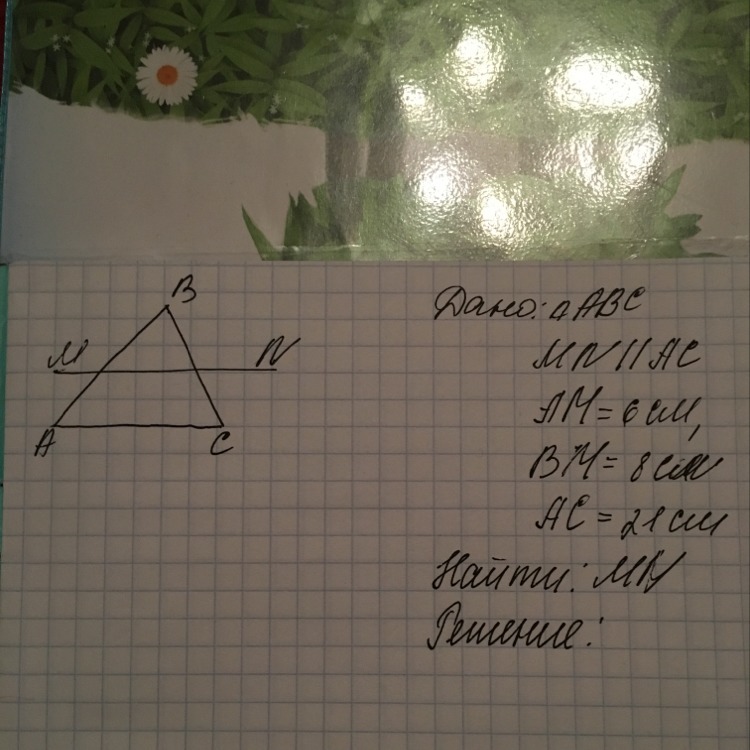 B
M N
A C
Дано: △ABC
MN || AC
AM = 6 см,
BM = 8 см
AC = 21 см
Найти: MN
Решение: